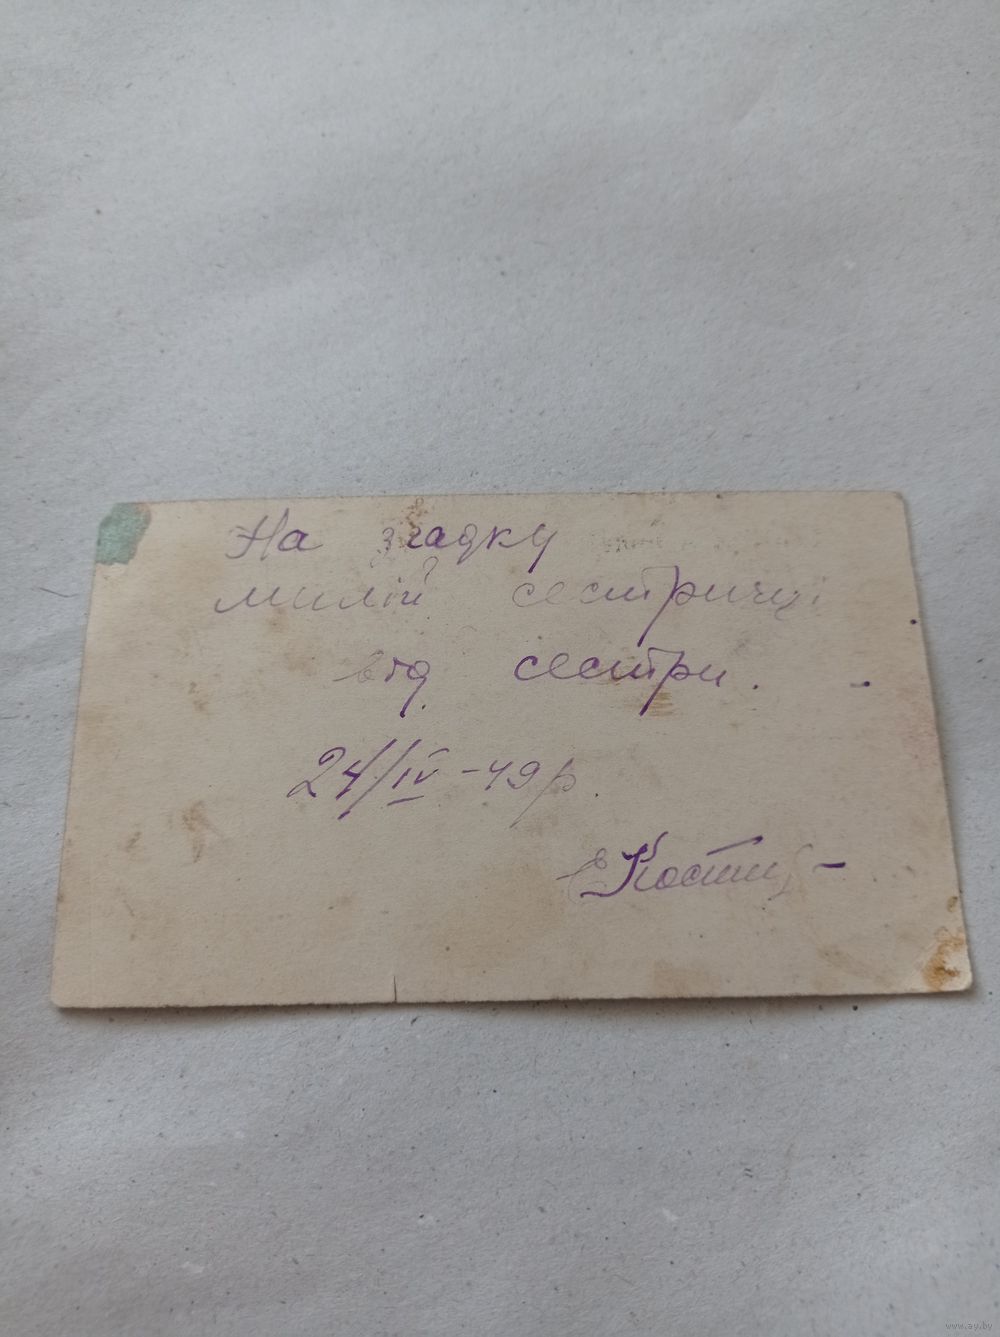 На згадку
милій сестричці
від сестри.
24/IV-49р.
www.ay.by